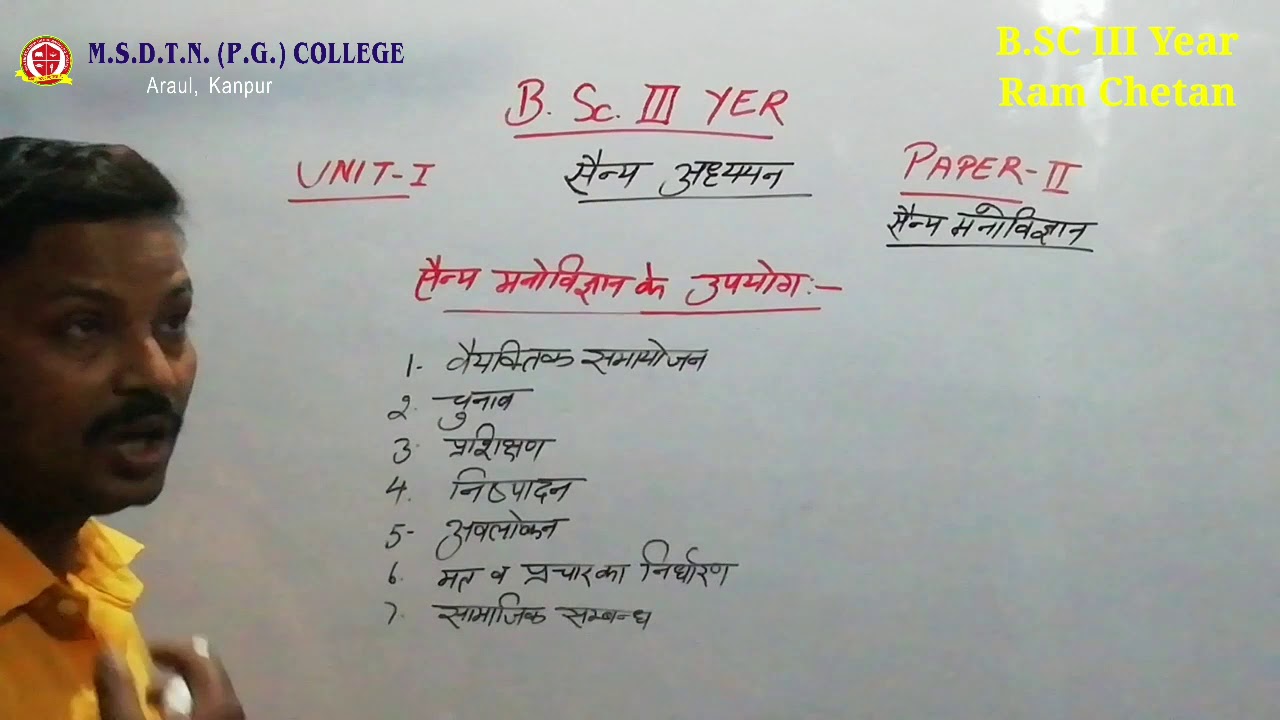 M.S.D.T.N. (P.G.) COLLEGE
Araul, Kanpur
B.SC III Year
Ram Chetan
B. Sc. III YER
UNIT-I
सैन्य अध्ययन
PAPER-II
सैन्य मनोविज्ञान
सैन्य मनोविज्ञान के उपयोग:-
1- वैयक्तिक समायोजन
2. चुनाव
3. प्रशिक्षण
4. निष्पादन
5- अवलोकन
6. मत व प्रचार का निर्धारण
7. सामाजिक सम्बन्ध